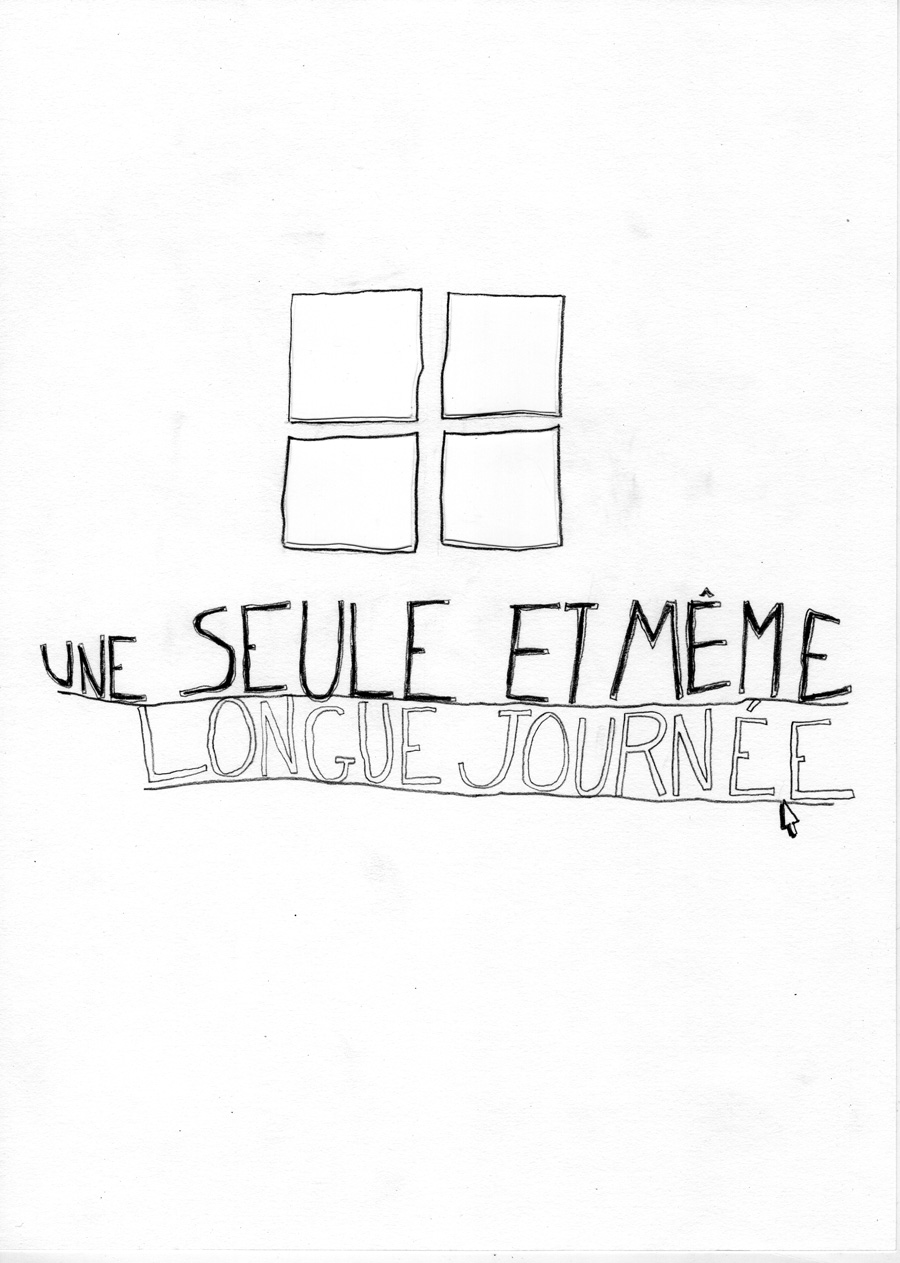 UNE SEULE ET MÊME
LONGUE JOURNÉE